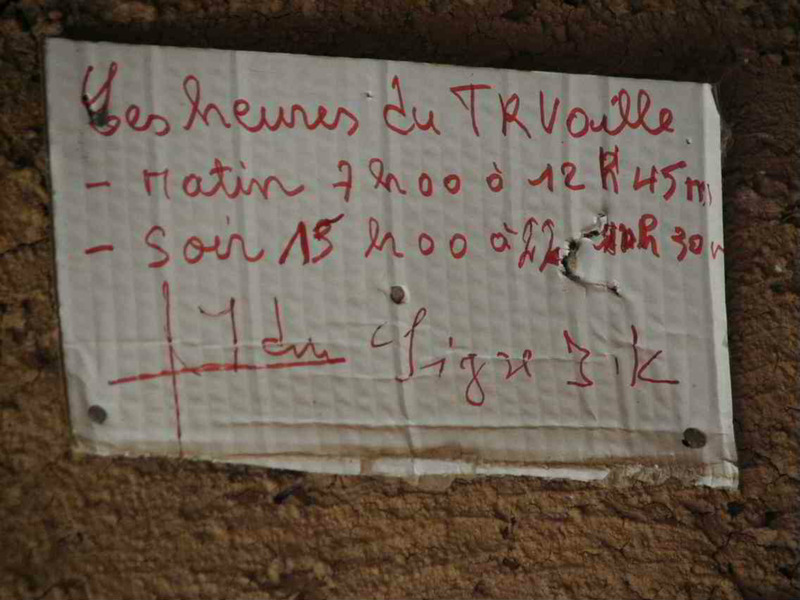 Les heures du TRVaille
- Matin 7 h 00 à 12 h 45 m
- Soir 15 h 00 à 22 h 30
Signé J.K